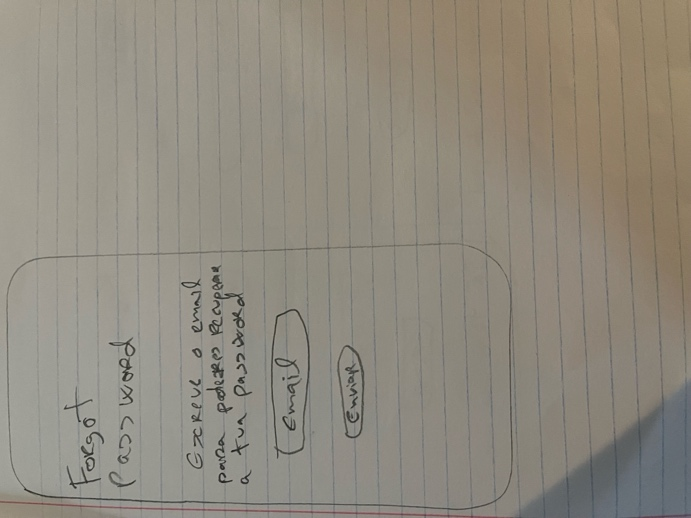 Forgot
Password
Escreve o email
para poderes recuperar
a tua password
Email
Enviar